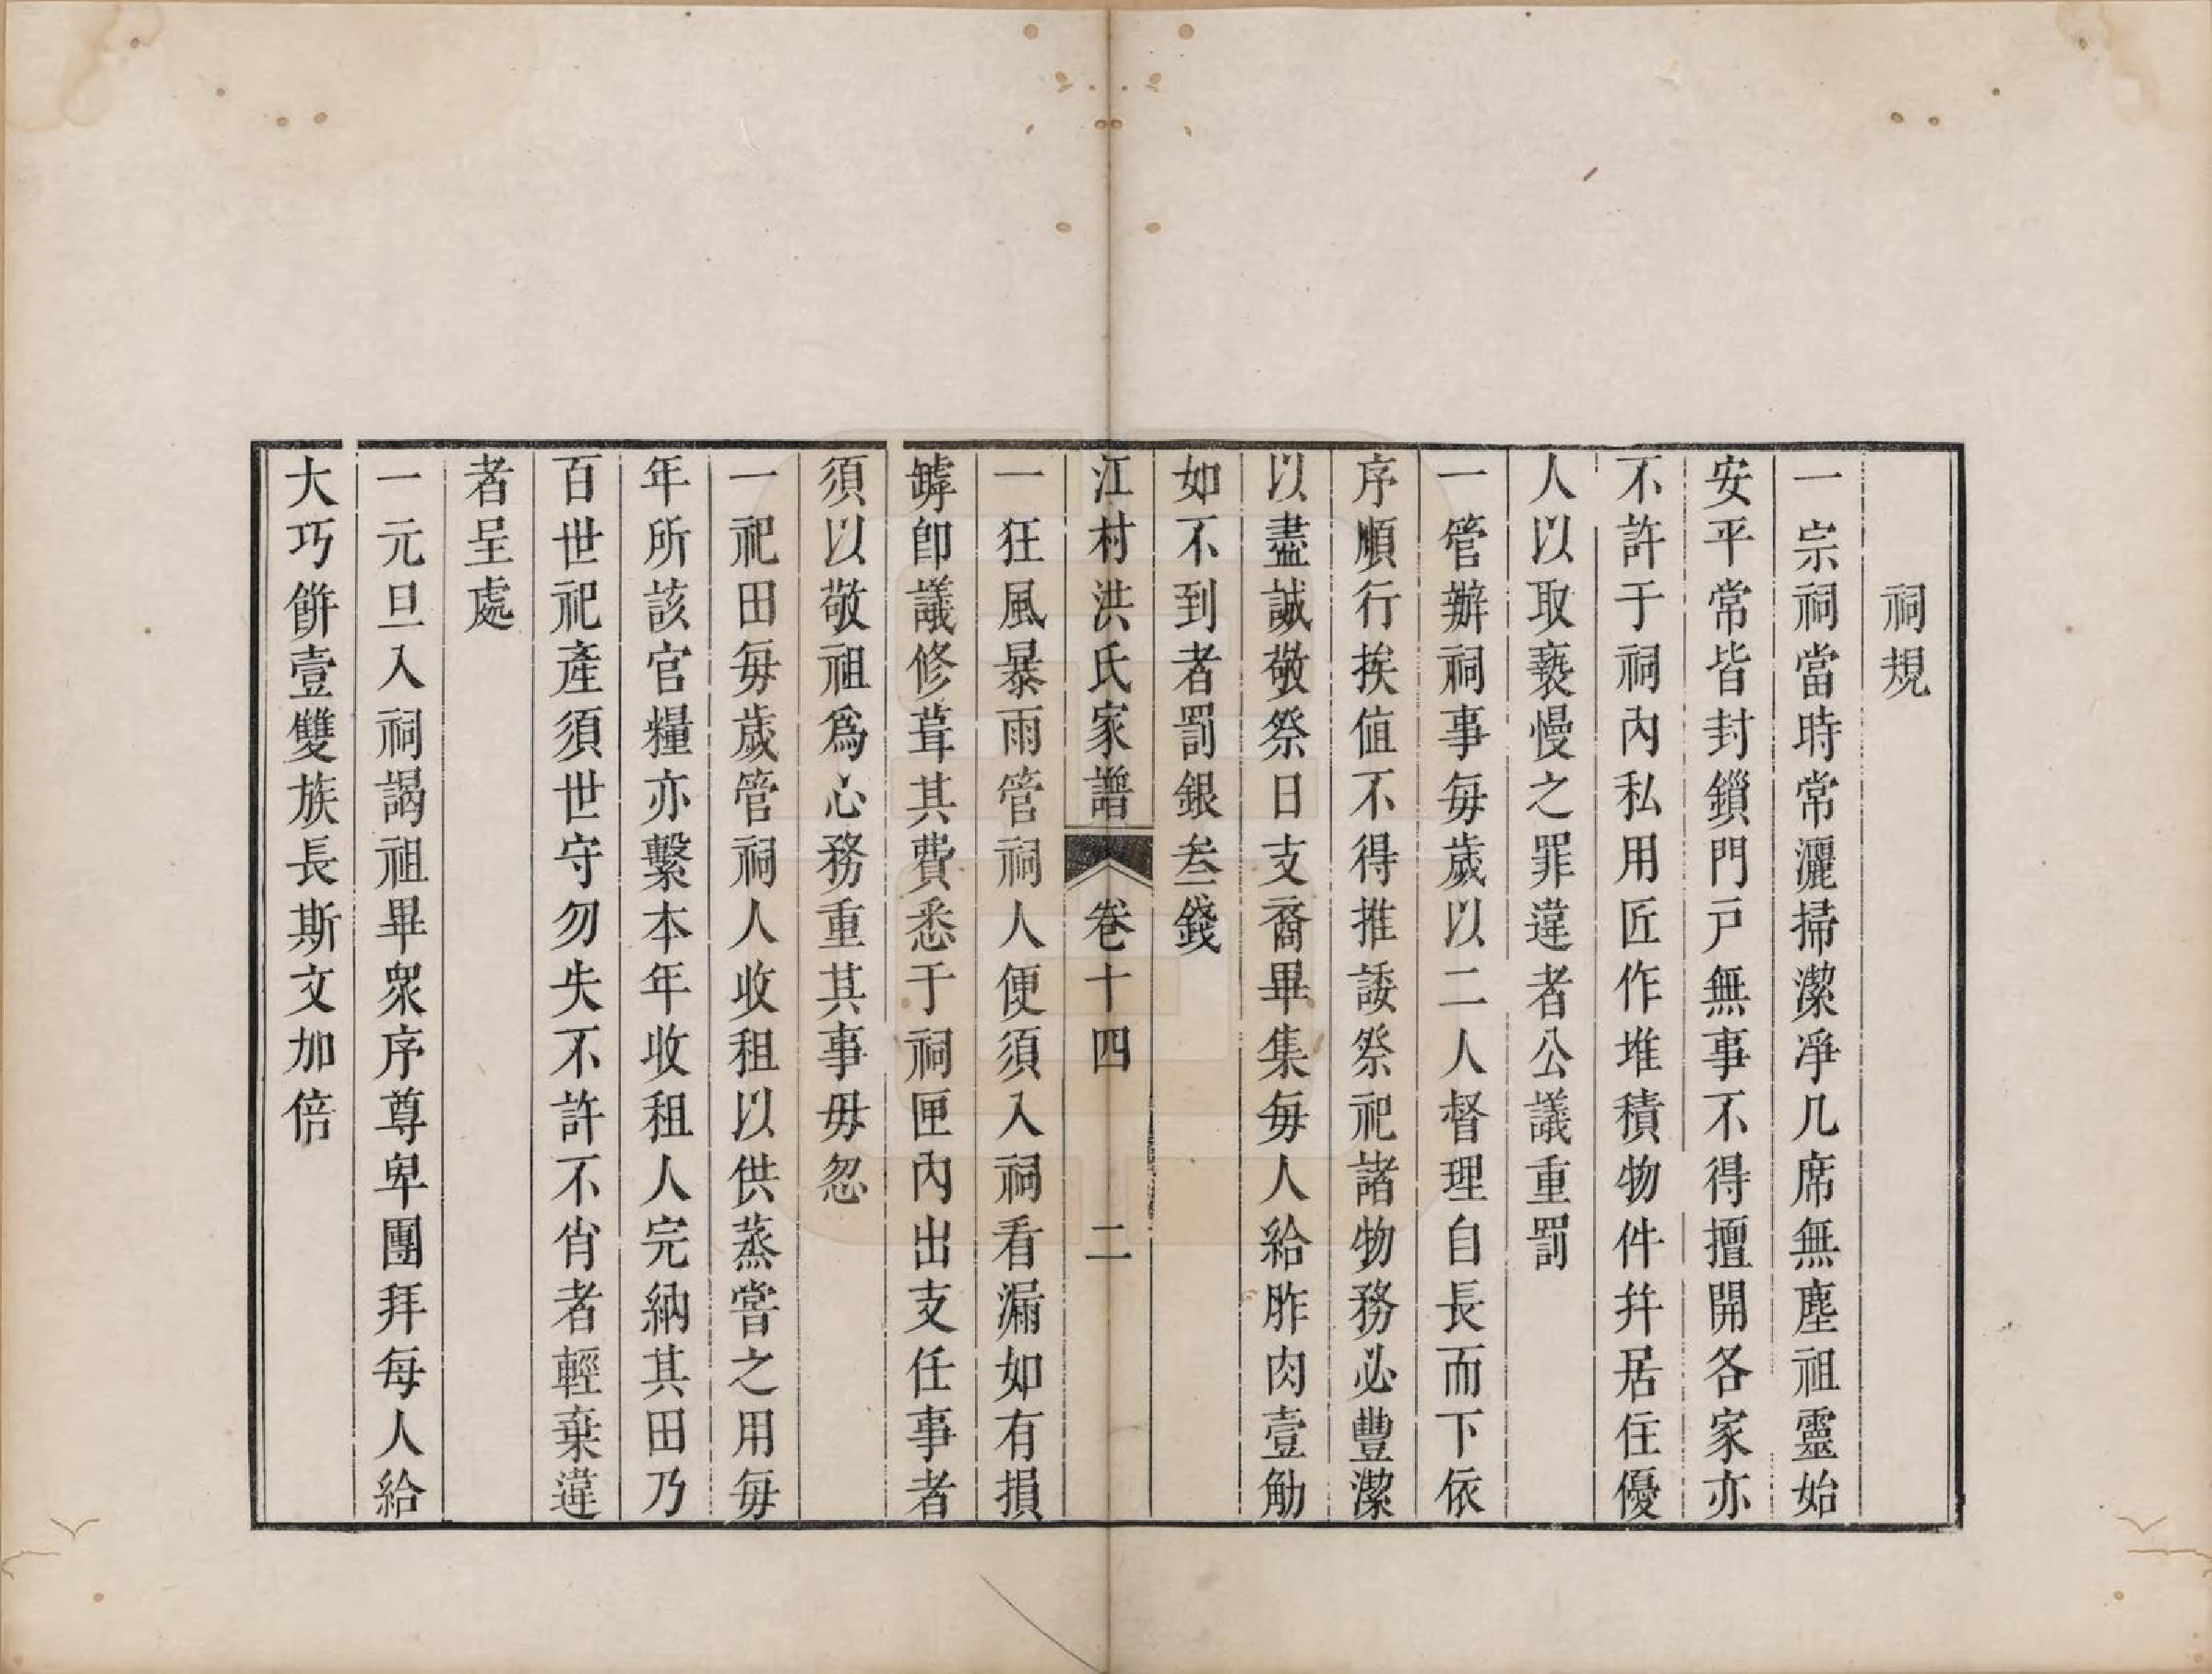 祠規
一宗祠當時常灑掃潔凈几席無塵祖靈始
安平常皆封鎖門戶無事不得擅開各家亦
不許于祠內私用匠作堆積物件幷居住優
人以取褻慢之罪違者公議重罰
一管辦祠事每歲以二人督理自長而下依
序順行挨值不得推諉祭祀諸物務必豐潔
以盡誠敬祭日支裔畢集每人給胙肉壹觔
如不到者罰銀叁錢
江村洪氏家譜 卷十四 二
一狂風暴雨管祠人便須入祠看漏如有損
罅卽議修葺其費悉于祠匣內出支任事者
須以敬祖爲心務重其事毋忽
一祀田每歲管祠人收租以供蒸嘗之用每
年所該官糧亦繫本年收租人完納其田乃
百世祀產須世守勿失不許不肖者輕棄違
者呈處
一元旦入祠謁祖畢衆序尊卑團拜每人給
大巧餠壹雙族長斯文加倍